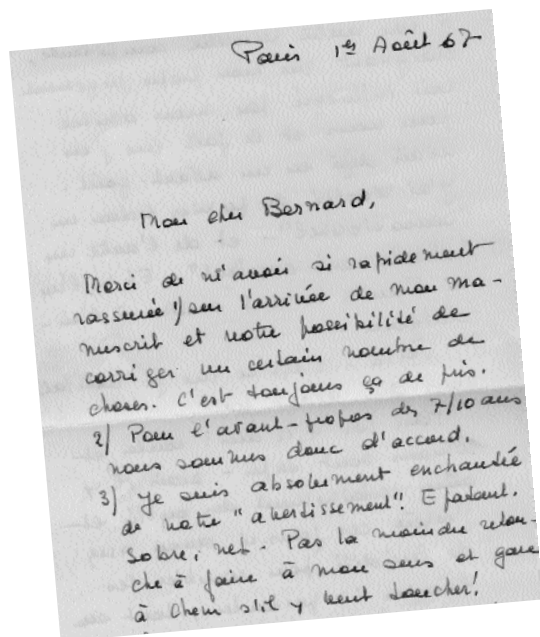 Paris 1er Août 67
Mon cher Bernard,
Merci de m'avoir si rapidement
rassurée 1/ sur l'arrivée de mon ma-
nuscrit et notre possibilité de
corriger un certain nombre de
choses. C'est toujours ça de pris.
2/ Pour l'avant-propos des 7/10 ans
nous sommes donc d'accord.
3) Je suis absolument enchantée
de notre "avertissement". Epatant.
Sobre, net. Pas la moindre retou-
che à faire à mon sens et gare
à Chem s'il y veut toucher!